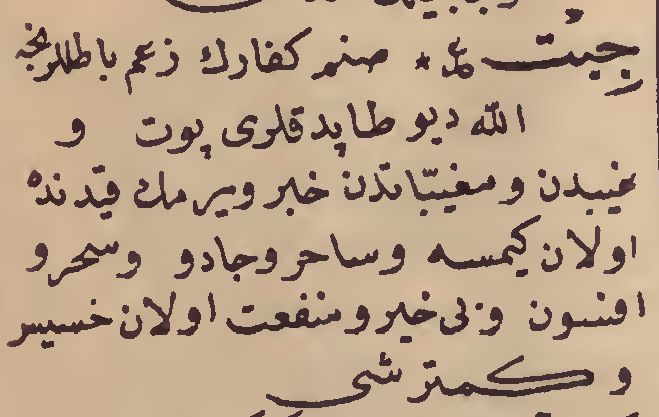 جبت ع * صنم كفارك زعم باطللرنجه
الله ديو طاپدقلری پوت و
غيبدن و مغيباتدن خبر ويرمك قيدنده
اولان كيمسه و ساحر و جادو و سحر و
افسون و بی خير و منفعت اولان خسيس
و كمتر شی